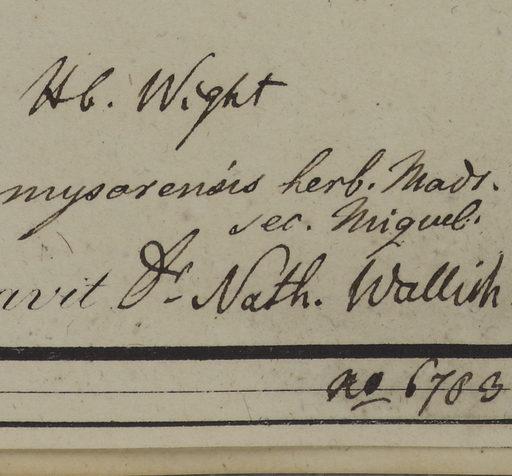 Hb. Wight
mysorensis herb. Madr.
sec. Miquel.
avit Dr Nath. Wallich
no 6783